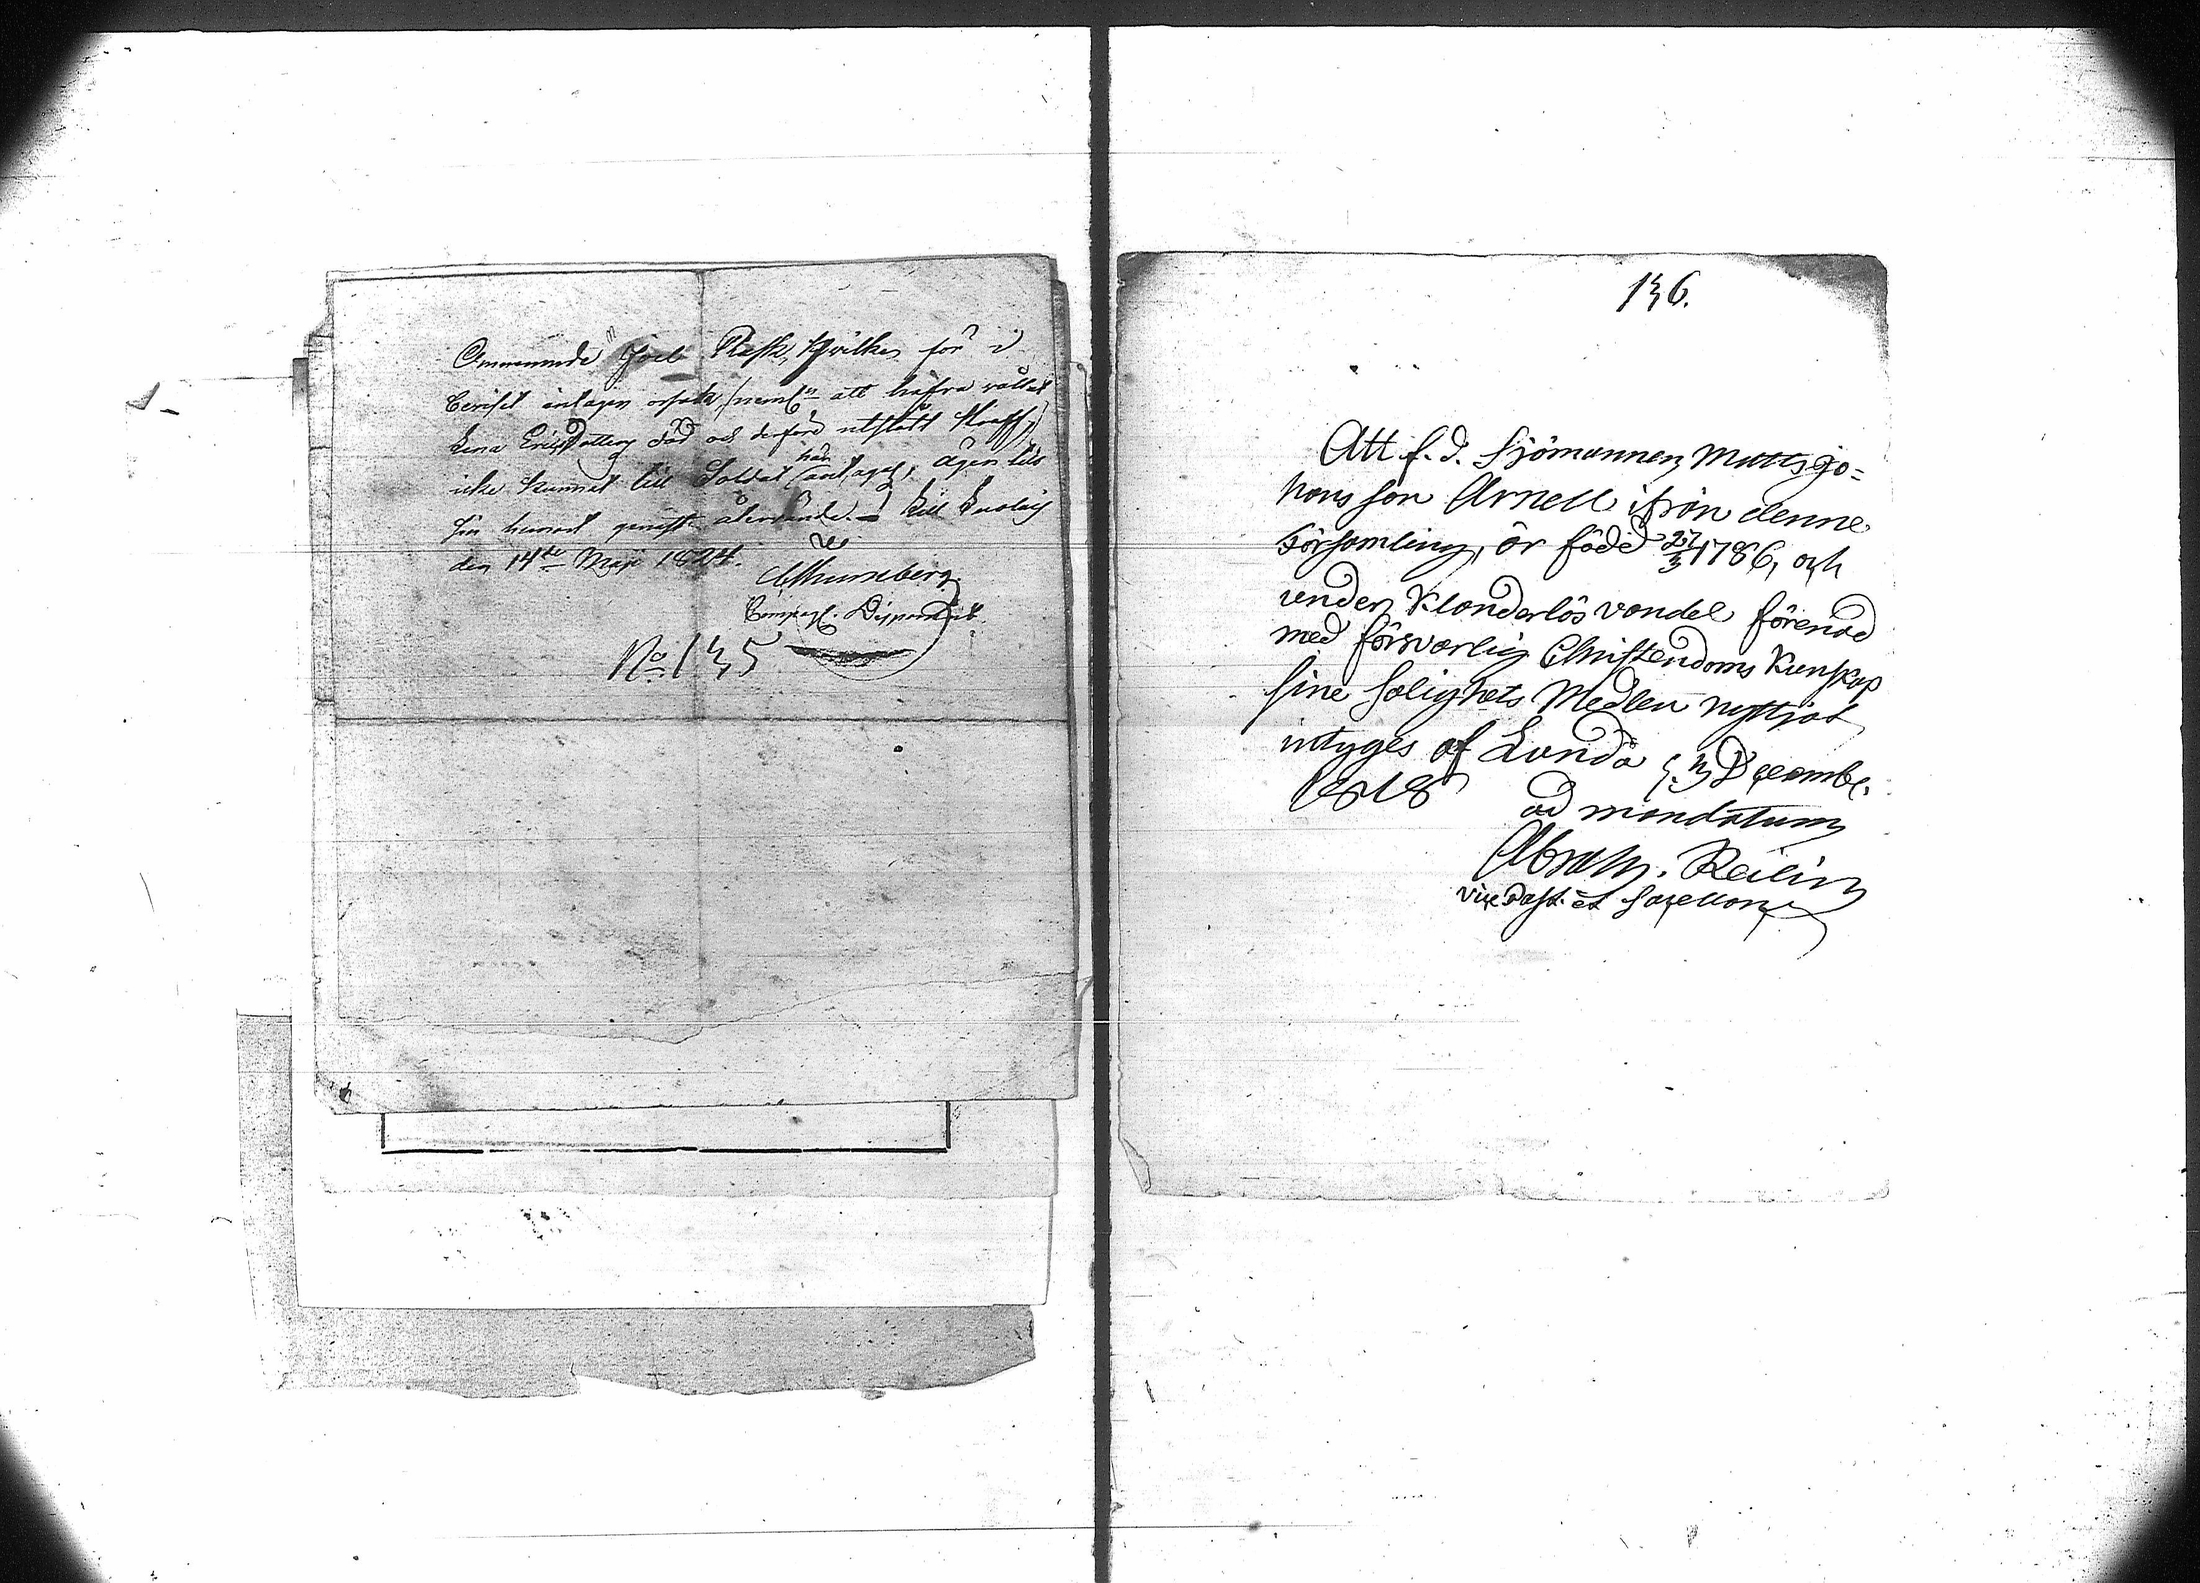 Omnemnde Joel Rask, hvilken för i
beviset intagen orsak (neml. att hafva vållat
Lena Ericsdotters död och derföre utstått straff)
icke kunnat till Soldat han antagas, äger till
sin hemort genast återvända.
den 14de Maji 1824.
Thunberg
Compagn.
No 135
136.
Att f. d. Sjömannen Matts Jo=
hans son Arnell ifrån denne
Församling, är född 27/3 1786, och
under Klanderlös vandel förenad
med försvarlig Christendoms Kunskap
sine Salighets Medlen nyttjat
intyges af Lunda d. 3 Decembr.
1818
ad mandatum
Abrah. Reilin
vice Past. et Sacellan